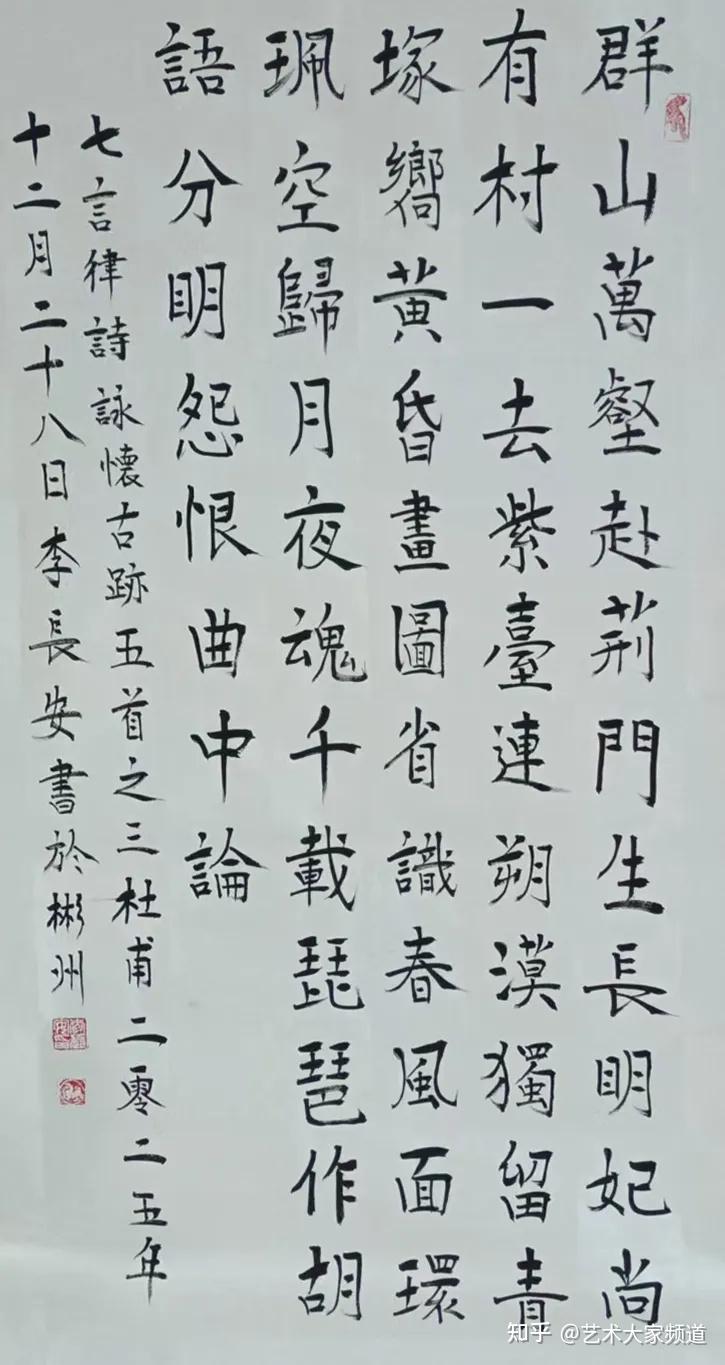 群山萬壑赴荊門生長明妃尚
有村一去紫臺連朔漠獨留青
塚嚮黃昏畫圖省識春風面環
珮空歸月夜魂千載琵琶作胡
語分明怨恨曲中論
七言律詩詠懷古跡五首之三杜甫二零二五年
十二月二十八日李長安書於彬州
知乎 @艺术大家频道